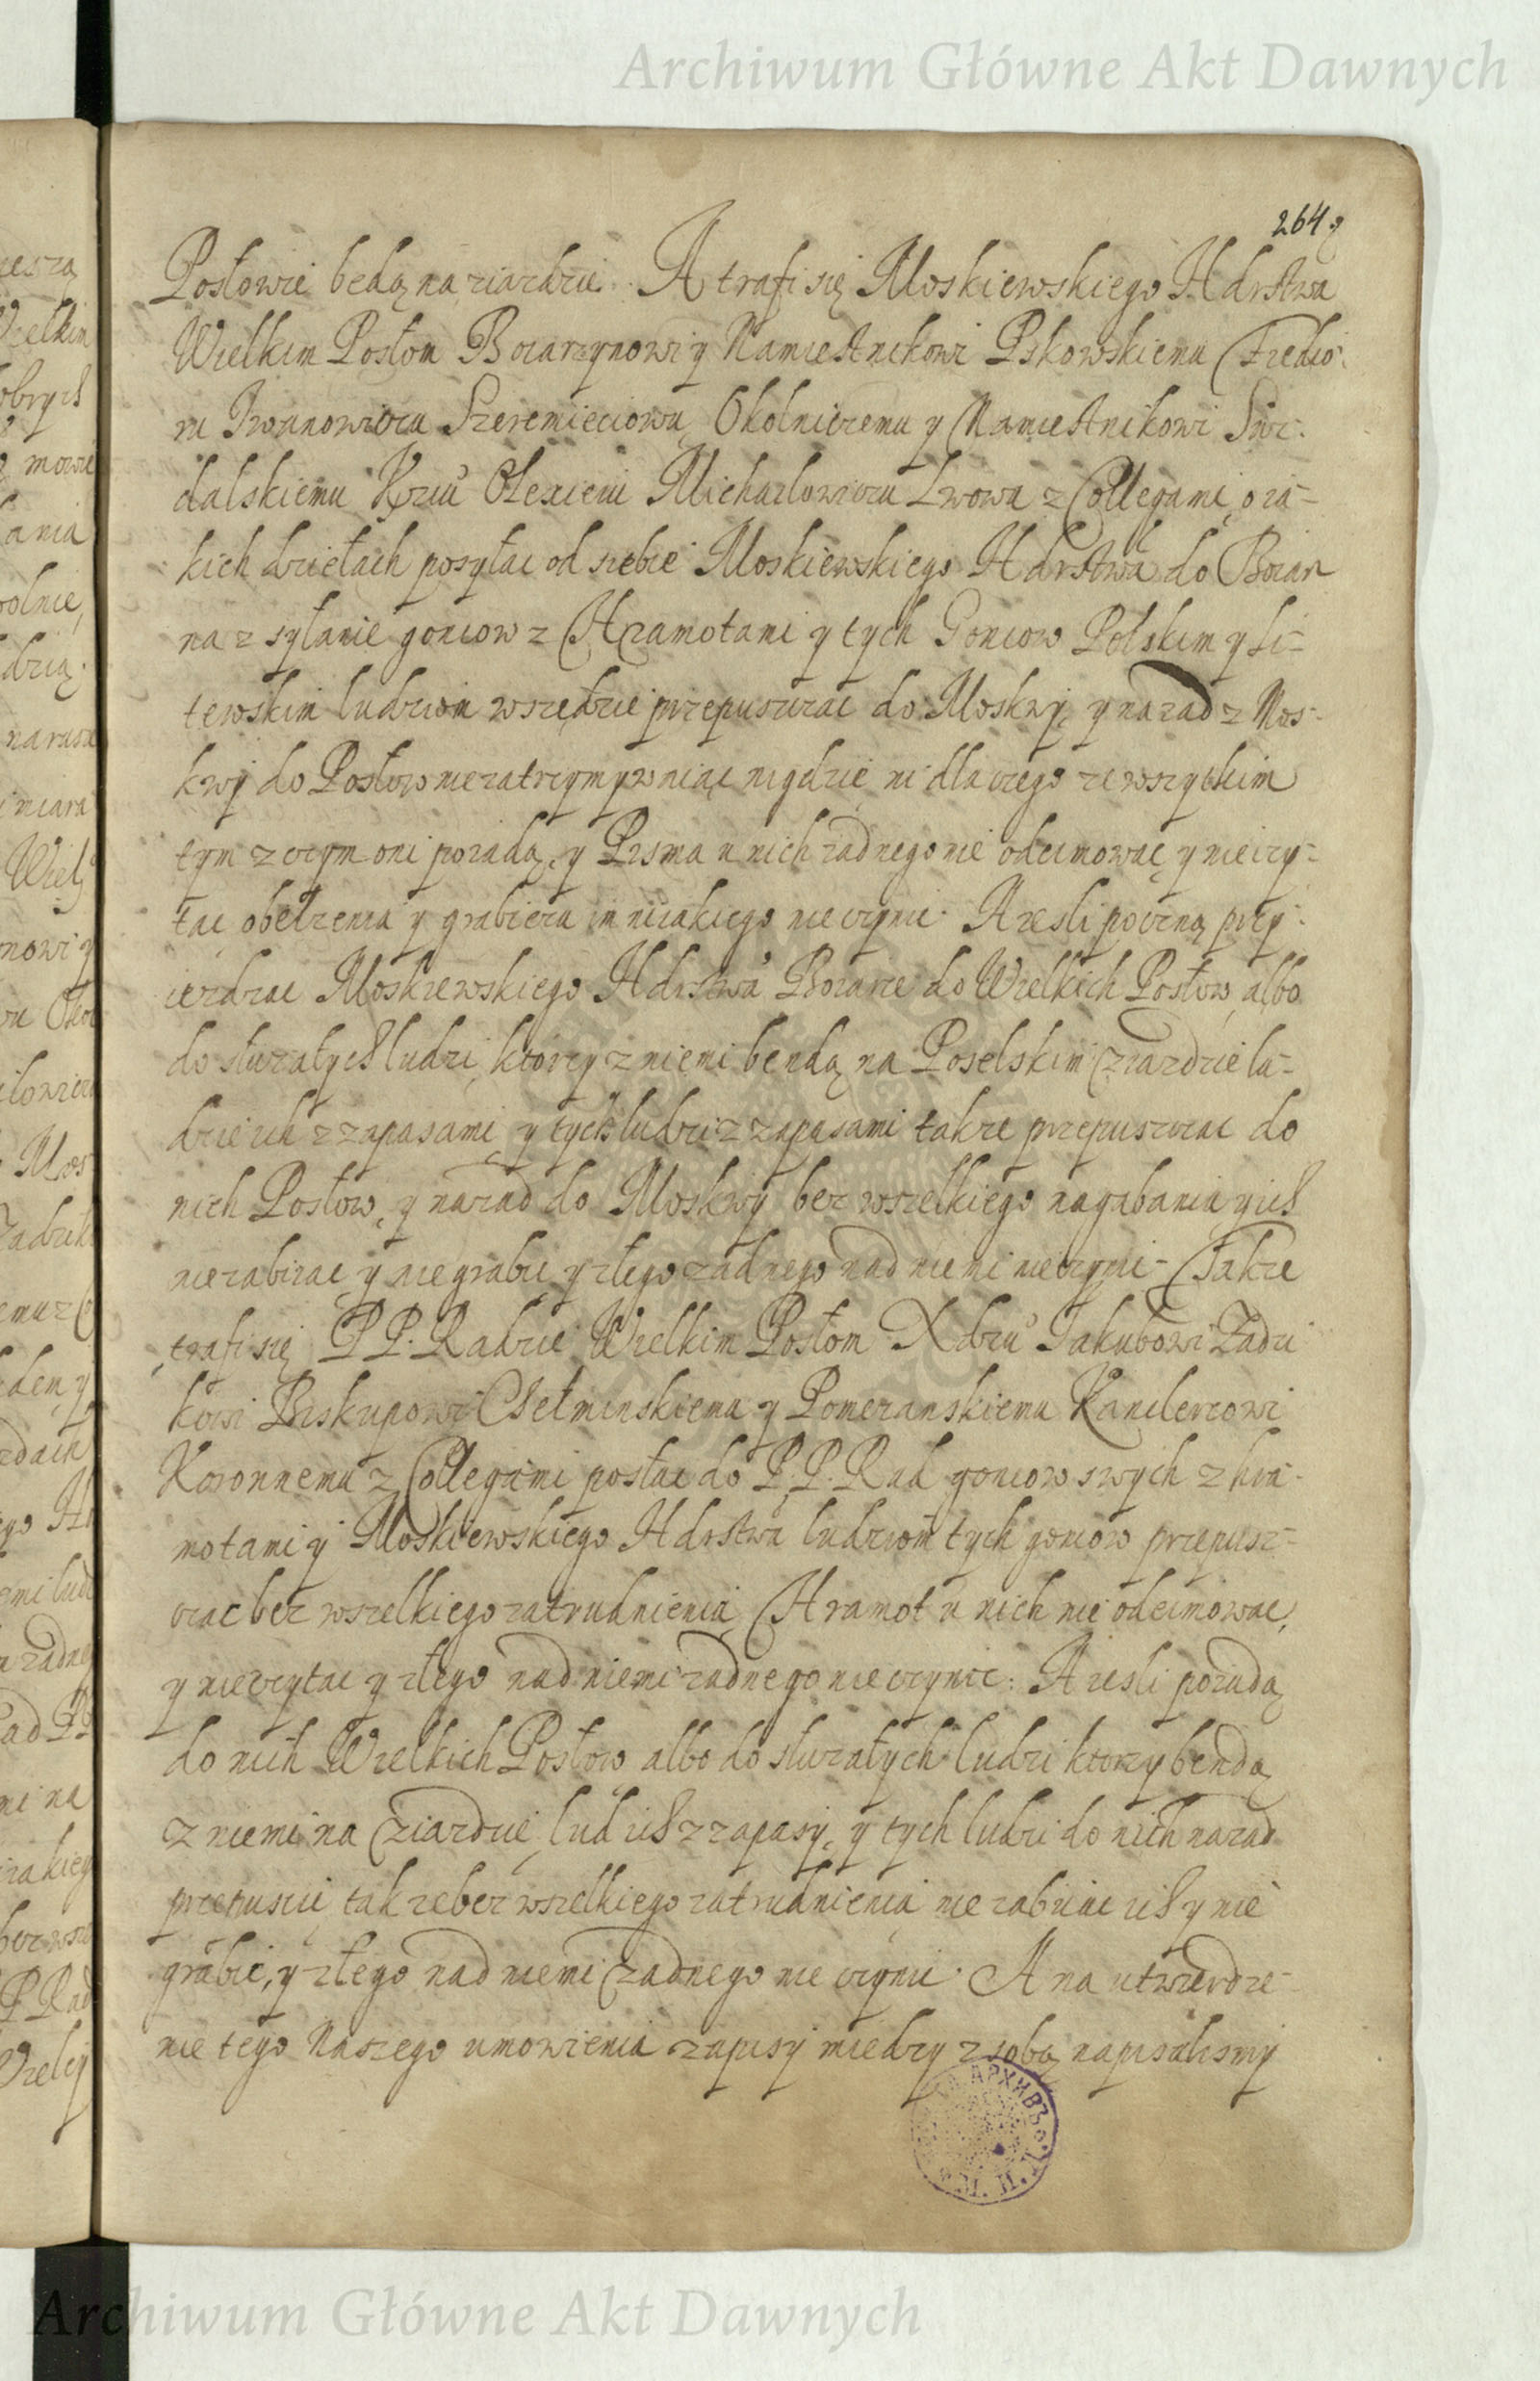 Archiwum Główne Akt Dawnych
264
Posłowie będą na ziazdzie. A trafi się Moskiewskiego Hdrstwa
Wielkim Posłom Boiarzynowi y Namiestnikowi Pskowskiemu Fiedio:
ru Iwanowiczu Szeremieciowu, Okolniczemu y Namiestnikowi Suz:
dalskiemu Kziu Olexieiu Michaylowiczu Lwowu z Collegami, o ia-
kich dziełach posyłac od siebie Moskiewskiego Hdrstwa do Boiar
na z syłanie goncow z Hramotami y tych Goncow Polskim y Li-
tewskim ludziom wszędzie przepuszczac do Moskwy, y nazad z Mos-
kwy do Posłow nie zatrzymywaiąc nigdzie ni dla czego ze wszytkim
tym z czym oni poiadą, y Pisma u nich żadnego nie odeimowac, y nie czy-
tac obelzenia y grabieza im niiakiego nie czynic. A iesli poczną przy-
iezdzac Moskiewskiego Hdrstwa Boiarie do Wielkich Posłow, albo
do słuzałych ludzi, którzy z niemi bendą na Poselskim ziazdzie lu-
dzie ich z zapasami, y tych ludzi z zapasami takze przepuszczac do
nich Posłow, y nazad do Moskwy bez wszelkiego nagabania y ich
nie zabiiac, y nie grabic, y złego żadnego nad niemi nie czynic. Takze
trafi się P P. Radzie Wielkim Posłom Xdzu Jakubowi Zadzi
kowi Biskupowi Chełminskiemu y Pomeranskiemu Kanclerzowi
Koronnemu z Collegami posłac do P. P. Rad goncow swych z hra-
motami y Moskiewskiego Hdrstwa ludziom tych goncow przepusz-
czac bez wszelkiego zatrudnienia, Hramot u nich nie odeimowac,
y nie czytac y złego nad niemi żadnego nie czynic: A iesli poiadą
do nich Wielkich Posłow albo do słuzałych ludzi ktorzy bendą
z niemi na ziazdzie, lud ich z zapasy, y tych ludzi do nich nazad
przepuscic, takze bez wszelkiego zatrudnienia nie zabiiac ich y nie
grabic, y złego nad niemi żadnego nie czynic. A na utwierdze-
nie tego Naszego umowienia zapisy miedzy z sobą napisalismy
Archiwum Główne Akt Dawnych